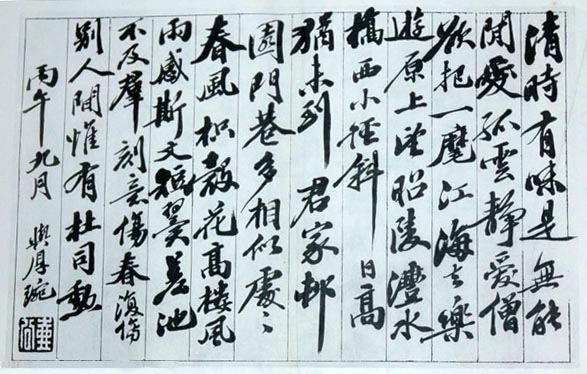 清時有味是無能
閒愛孤雲靜愛僧
欲把一麾江海去樂
遊原上望昭陵澧水
橋西小徑斜 日高
猶未到 君家邨
園門巷多相似處〻
春風枳殼花高樓風
雨感斯文短翼差池
不及羣刻意傷春復傷
別人間惟有杜司勳
丙午九月